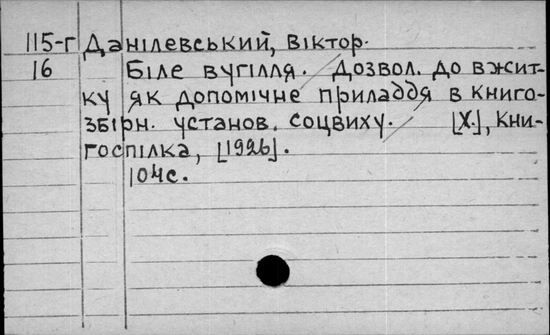 115-г Данілевський, Віктор.
16 Біле вугілля. Дозвол. до вжит-
ку як допомічне приладдя в книго-
збірн. установ. соцвиху. [Х.], Кни-
госпілка, [1926].
104с.